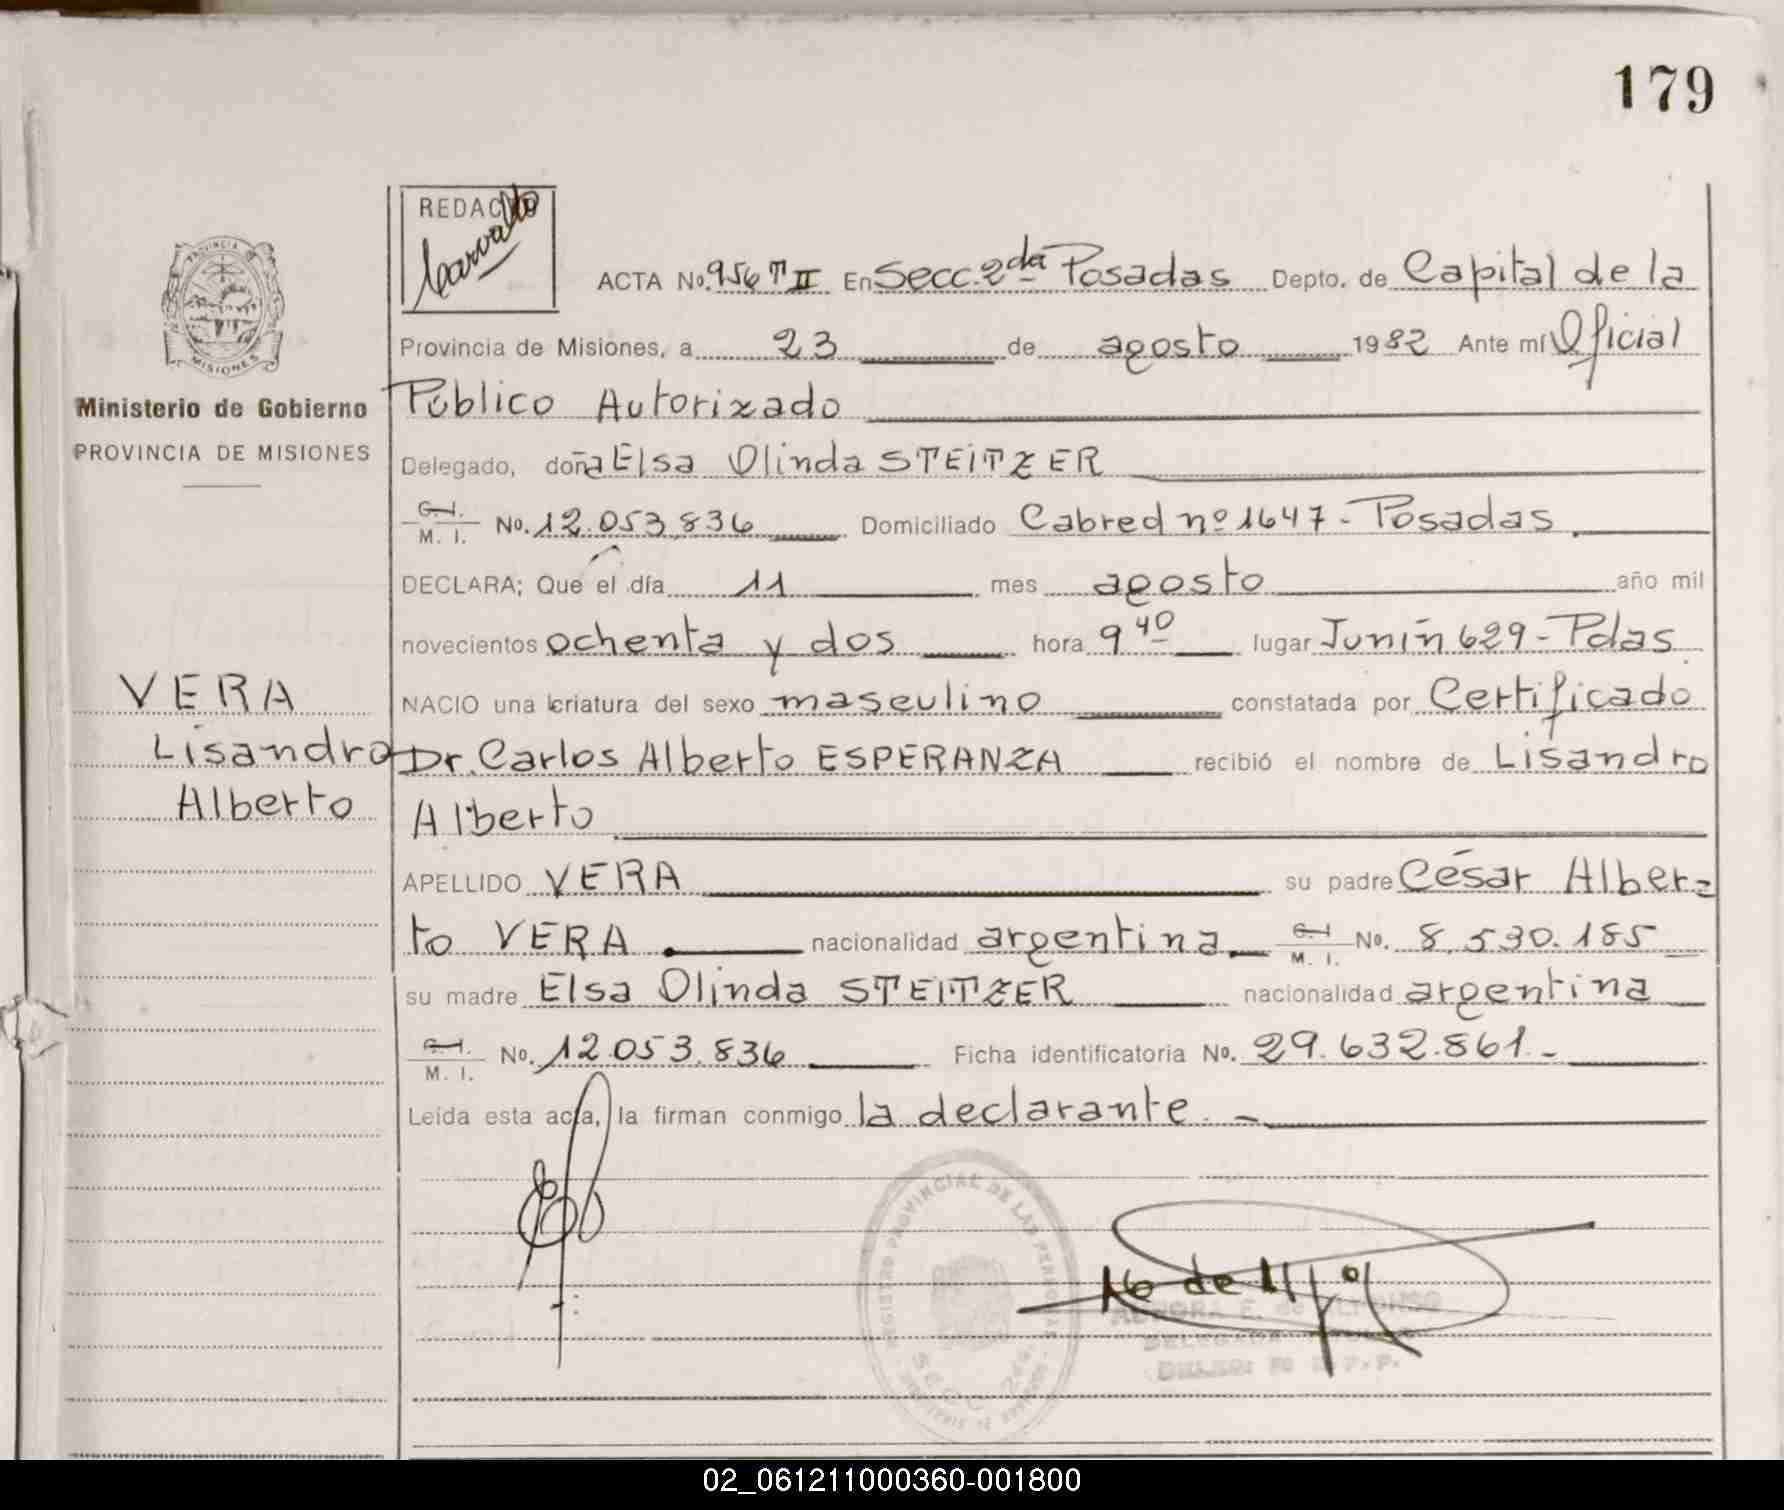 179
REDACTO
Carvallo
PROVINCIA
MISIONES
Ministerio de Gobierno
PROVINCIA DE MISIONES
ACTA No. 956 T II En Secc. 2da Posadas Depto. de Capital de la
Provincia de Misiones, a 23 de agosto 1982 Ante mí Oficial
Público Autorizado
Delegado, doña Elsa Olinda STEITZER
C. I. M. I. No. 12.053.836 Domiciliado Cabred nº 1647 - Posadas
DECLARA; Que el día 11 mes agosto año mil
novecientos ochenta y dos hora 9 40 lugar Junín 629 - Pdas.
NACIO una criatura del sexo masculino constatada por Certificado
Dr. Carlos Alberto ESPERANZA recibió el nombre de Lisandro
Alberto
APELLIDO VERA su padre César Alber=
to VERA nacionalidad argentina C. I. M. I. No. 8.530.185
su madre Elsa Olinda STEITZER nacionalidad argentina
C. I. M. I. No. 12.053.836 Ficha identificatoria No. 29.632.861.-
Leída esta acta, la firman conmigo la declarante. -
VERA
Lisandro
Alberto
REGISTRO PROVINCIAL DE LAS PERSONAS
SECC. 2da.
AURORA E. de ALFONSO
02_061211000360-001800